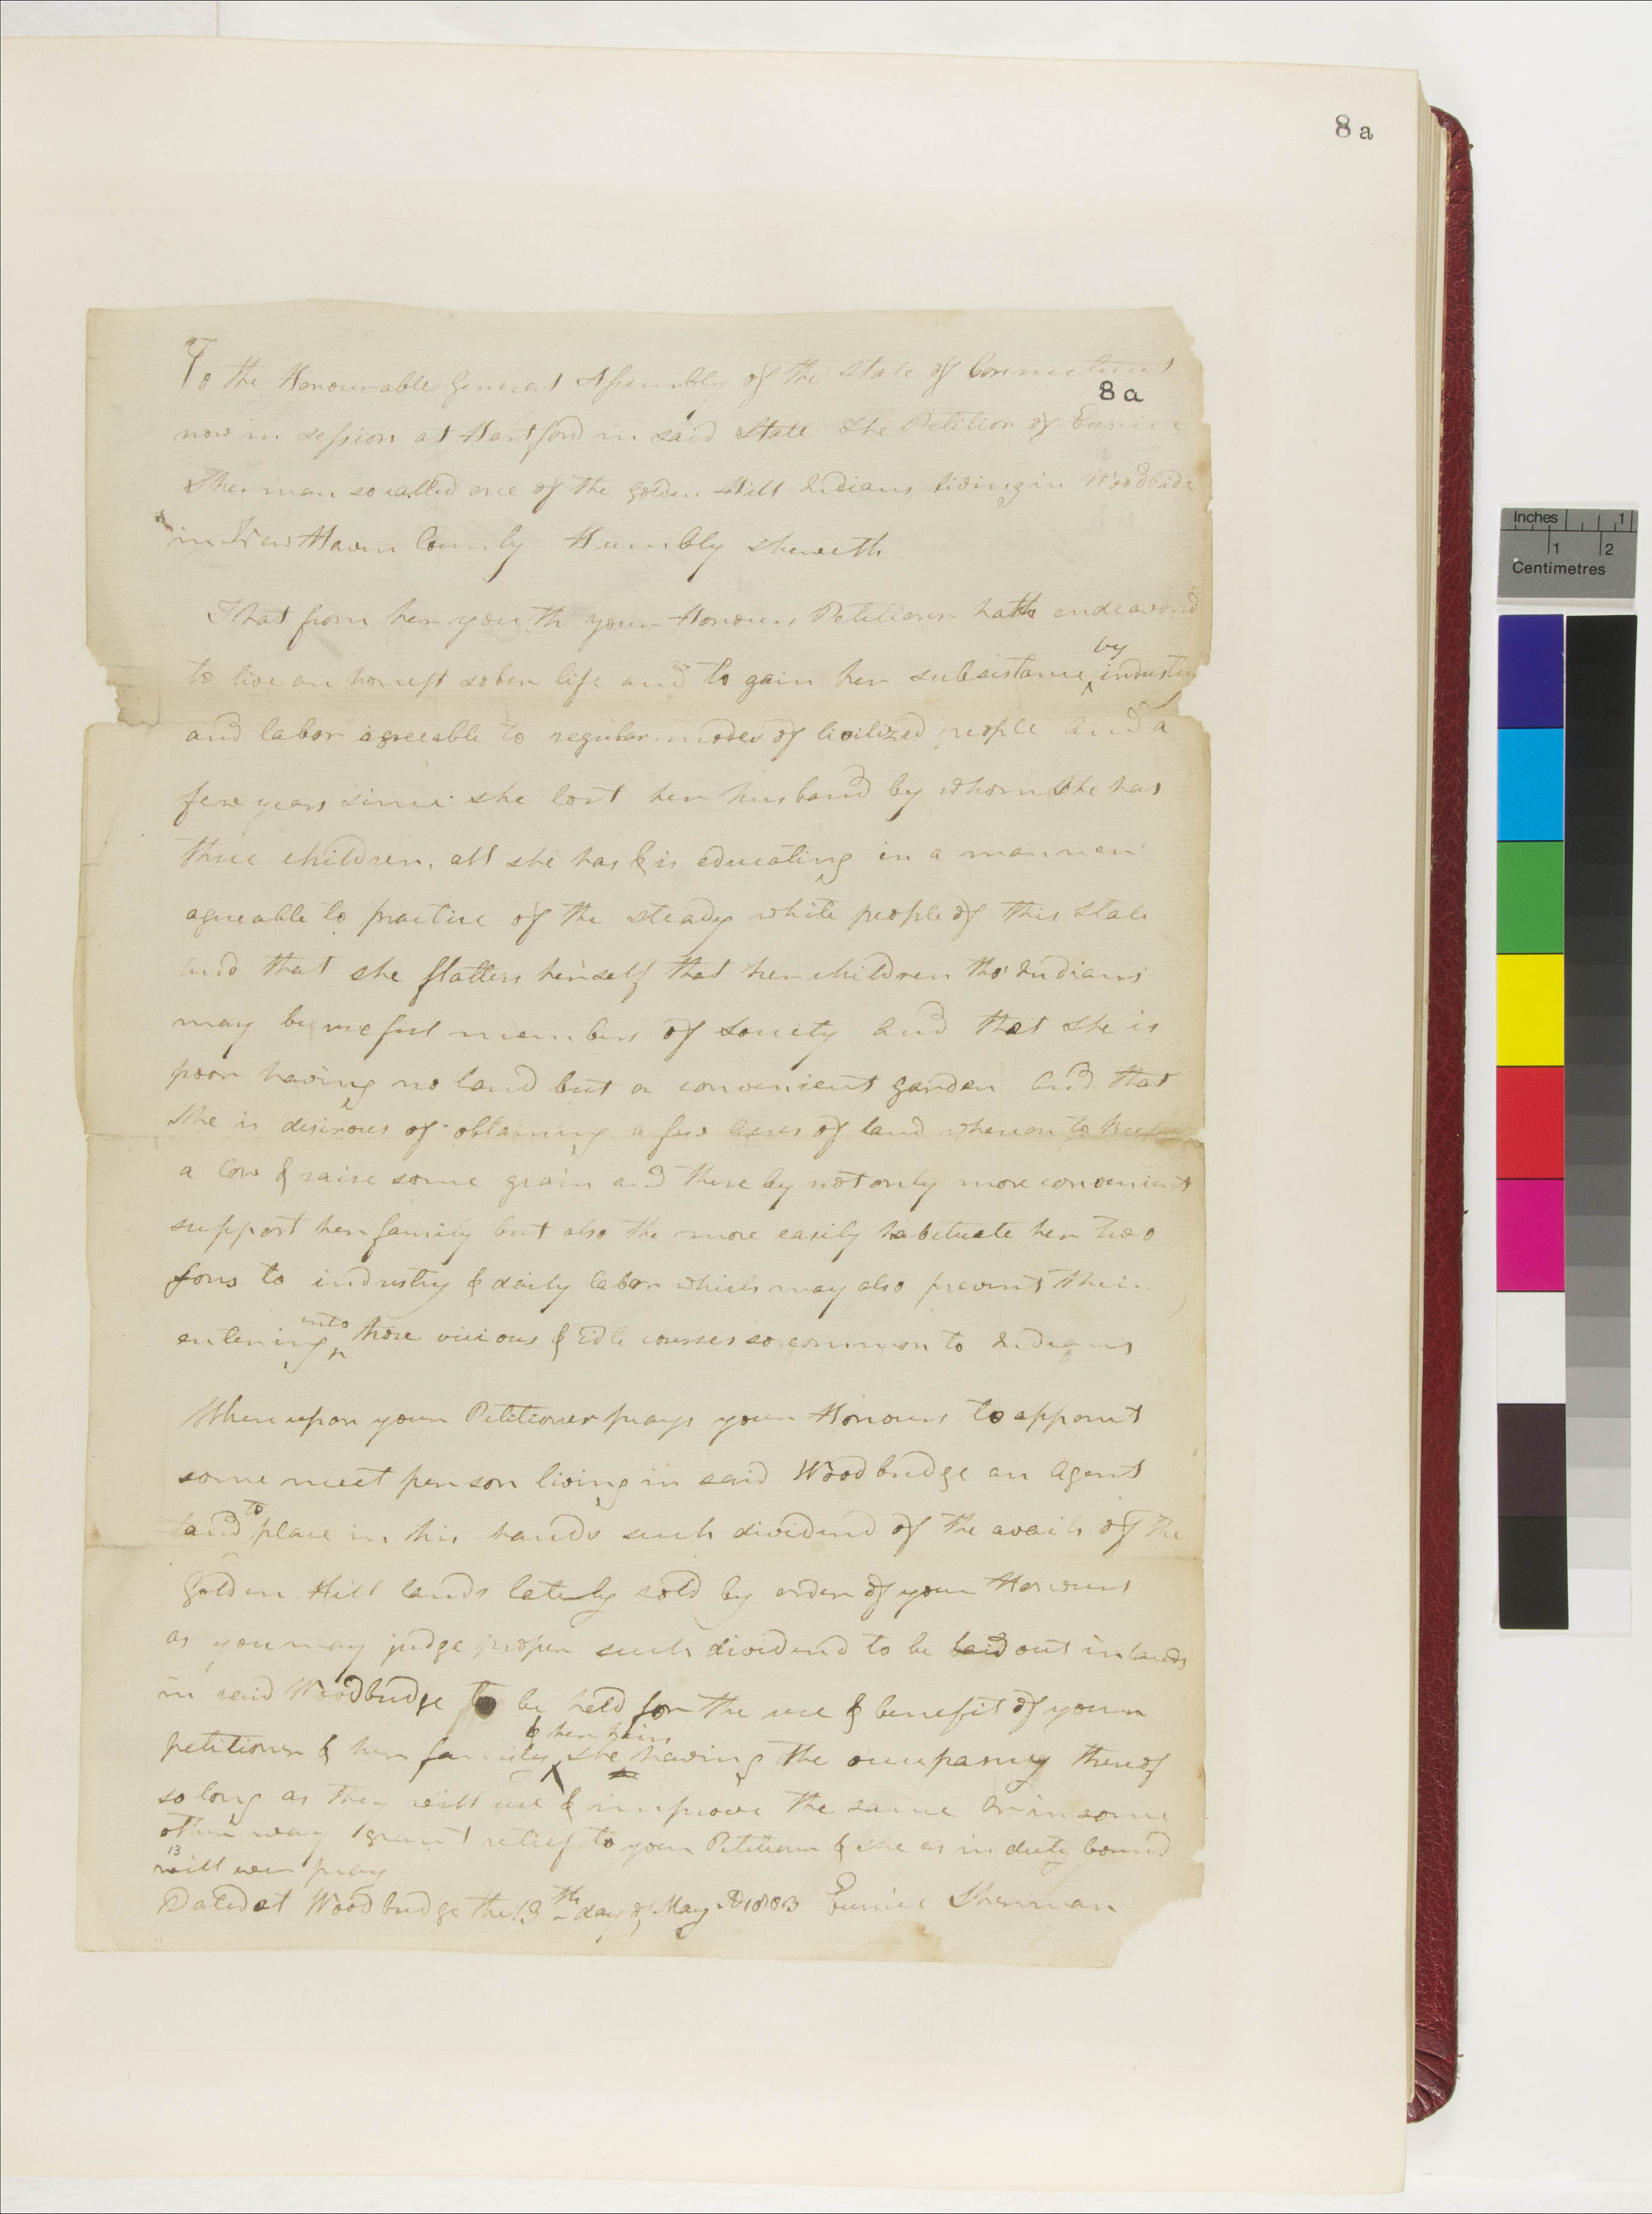 8 a
To the Honourable General Assembly of the State of Connecticut
8 a
now in session at Hartford in said State The Petition of Eunice
Sherman so called one of the Golden Hill Indians living in Woodbridge
in New Haven County Humbly sheweth
That from her youth your Honours Petitioner hath endeavored
to live an honest sober life and to gain her subsistance ^by industry
and labor agreeable to regular modes of Civilized people And a
few years since she lost her husband by whom she has
three children, all she has & is educating in a manner
agreable to practice of the steady white people of this State
And that she flatters herself that her children tho' Indians
may be useful members of Society And that She is
poor having no land but a convenient garden And that
She is desirous of obtaining a few Acres of land whereon to keep
a Cow & raise some grain and thereby not only more convenient
support her family but also the more easily habituate her two
sons to industry & daily labor which may also prevent their
entering ^into those vicious & idle courses so common to Indians
Whereupon your Petitioner prays your Honours to appoint
some meet person living in said Woodbridge an Agent
and ^to place in his hands such dividend of the avails of the
Golden Hill lands lately sold by order of your Honours
as you may judge proper such dividend to be laid out in lands
in said Woodbridge to be held for the use & benefit of your
petitioner & her family ^& her heirs she having the occupancy thereof
so long as they will use & improve the same Or in some
other way grant relief to your Petitioner & she as in duty bound
13
will ever pray
Dated at Woodbridge the 13th day of May AD 1803 Eunice Sherman
Inches 1
1 2
Centimetres